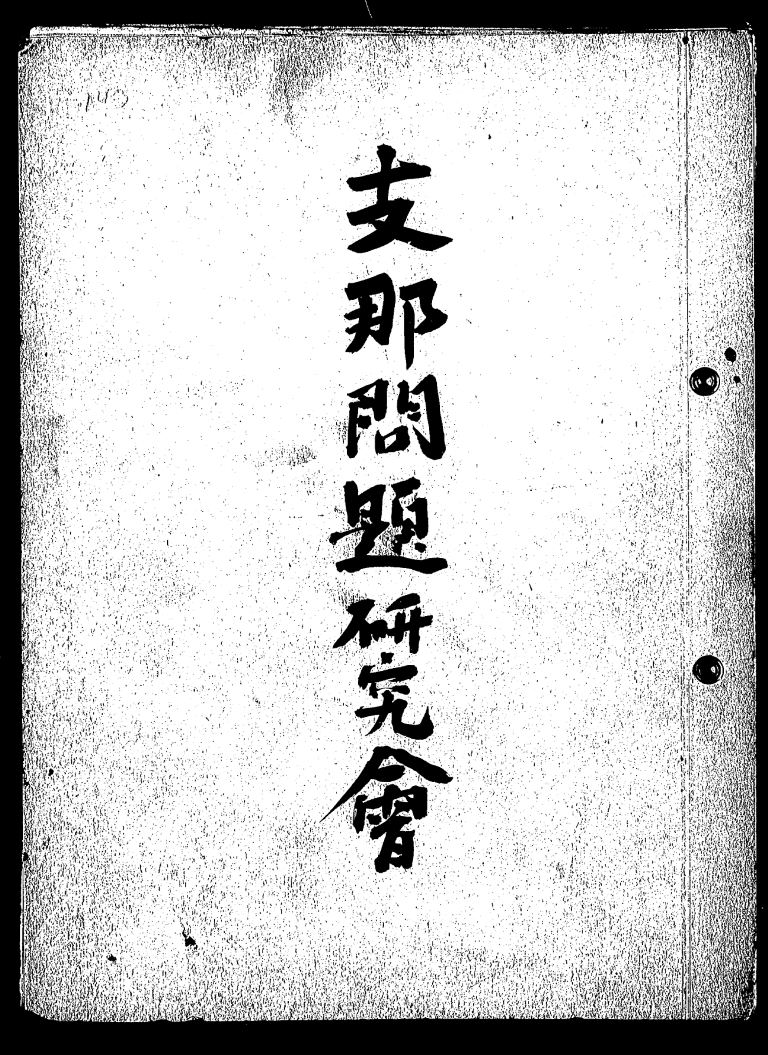 支那問題研究會